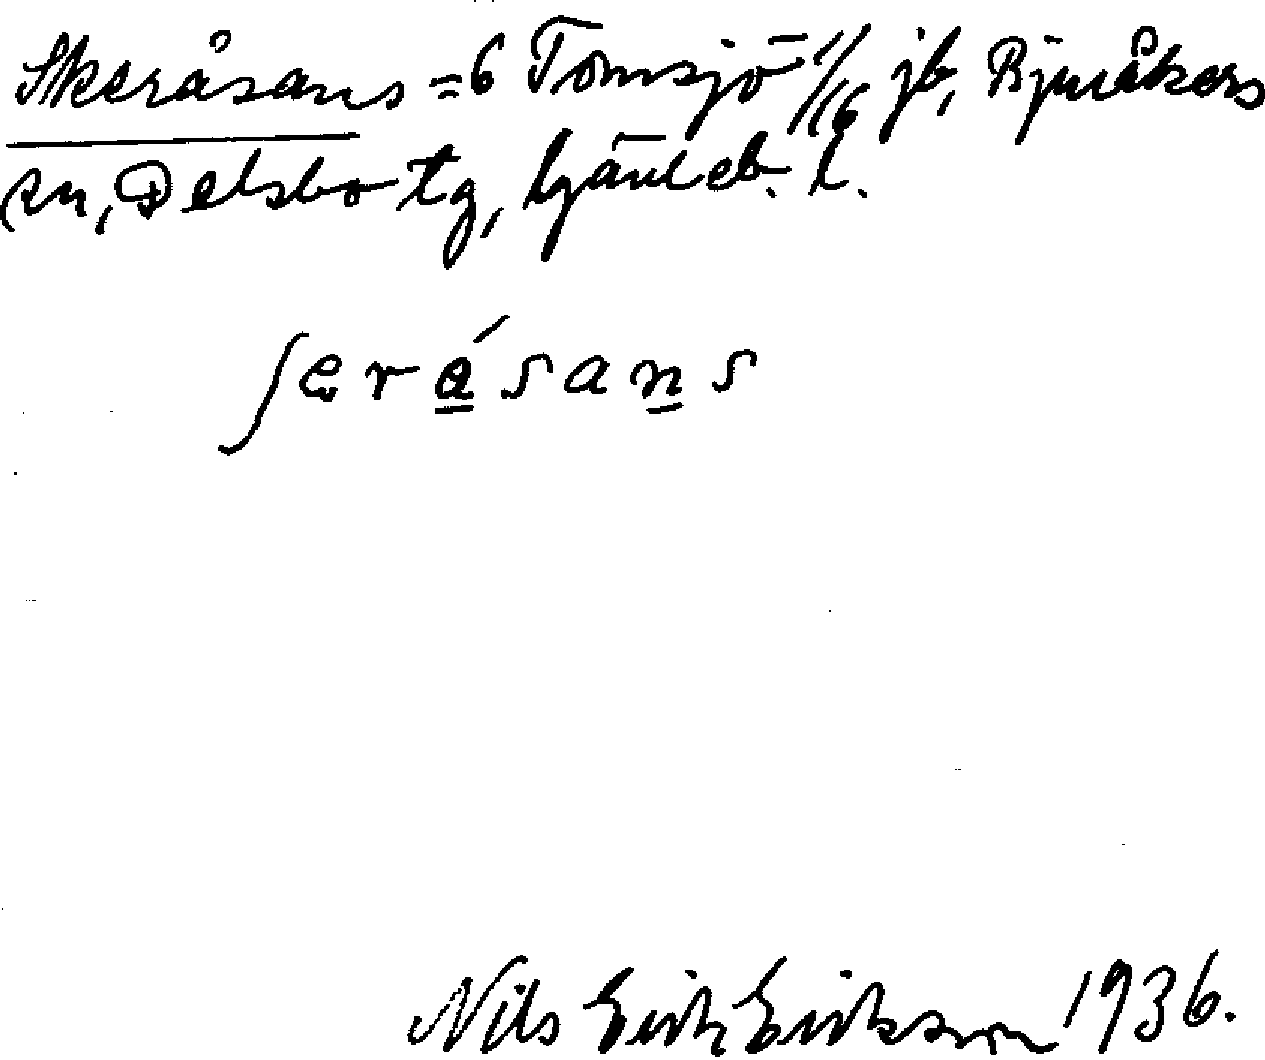 Skeråsans = 6 Tomsjö 1/16 jb, Bjuråkers
sn, Delsbo tg, Gävleb. l.
ʃerása̲ns
Nils Erik Eriksson 1936.